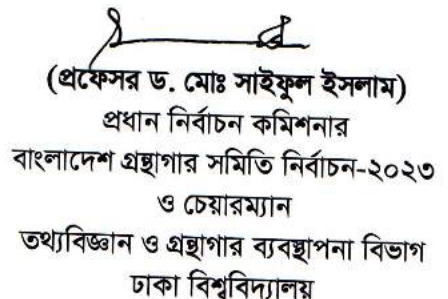 (প্রফেসর ড. মোঃ সাইফুল ইসলাম)
প্রধান নির্বাচন কমিশনার
বাংলাদেশ গ্রন্থাগার সমিতি নির্বাচন-২০২৩
ও চেয়ারম্যান
তথ্যবিজ্ঞান ও গ্রন্থাগার ব্যবস্থাপনা বিভাগ
ঢাকা বিশ্ববিদ্যালয়